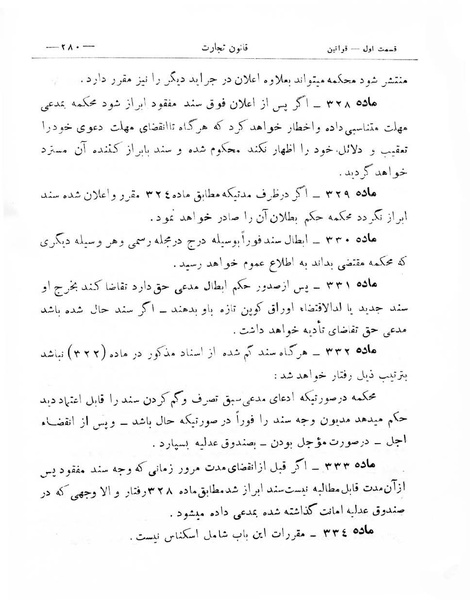 قسمت اول — قوانین
قانون تجارت
— ۲۸۰ —
منتشر شود محکمه میتواند بعلاوه اعلان در جراید دیگر را نیز مقرر دارد .
ماده ۳۲۸ — اگر پس از اعلان فوق سند مفقود ابراز شود محکمه بمدعی
مهلت متناسبی داده واخطار خواهد کرد که هرگاه تا انقضای مهلت دعوی خود را
تعقیب و دلائل خود را اظهار نکند محکوم شده و سند بابراز کننده آن مسترد
خواهد گردید .
ماده ۳۲۹ — اگر درظرف مدتیکه مطابق ماده ۳۲۴ مقرر واعلان شده سند
ابراز نگردد محکمه حکم بطلان آن را صادر خواهد نمود .
ماده ۳۳۰ — ابطال سند فوراً بوسیله درج در مجله رسمی وهر وسیله دیگری
که محکمه مقتضی بداند به اطلاع عموم خواهد رسید .
ماده ۳۳۱ — پس ازصدور حکم ابطال مدعی حق دارد تقاضا کند بخرج او
سند جدید یا لدالاقتضاء اوراق کوپن تازه باو بدهند — اگر سند حال شده باشد
مدعی حق تقاضای تأدیه خواهد داشت .
ماده ۳۳۲ — هرگاه سند گم شده از اسناد مذکور در ماده (۳۲۲) نباشد
بترتیب ذیل رفتار خواهد شد :
محکمه درصورتیکه ادعای مدعی سبق تصرف وگم کردن سند را قابل اعتماد دید
حکم میدهد مدیون وجه سند را فوراً در صورتیکه حال باشد — و پس از انقضاء
اجل — درصورت مؤجل بودن — بصندوق عدلیه بسپارد .
ماده ۳۳۳ — اگر قبل ازانقضای مدت مرور زمانی که وجه سند مفقود پس
ازآن مدت قابل مطالبه نیست سند ابراز شد مطابق ماده ۳۲۸ رفتار و الا وجهی که در
صندوق عدلیه امانت گذاشته شده بمدعی داده میشود .
ماده ۳۳۴ — مقررات این باب شامل اسکناس نیست .